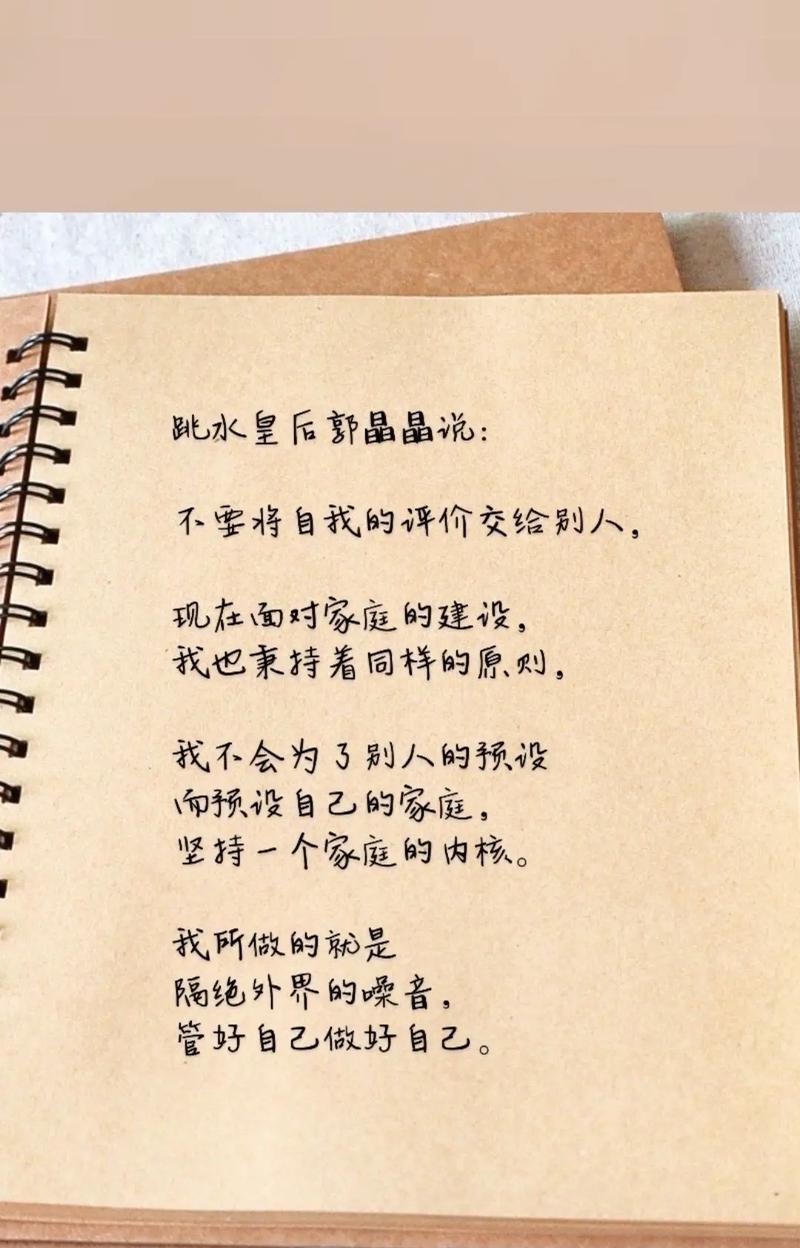 跳水皇后郭晶晶说:
不要将自我的评价交给别人,
现在面对家庭的建设,
我也秉持着同样的原则,
我不会为了别人的预设
而预设自己的家庭,
坚持一个家庭的内核。
我所做的就是
隔绝外界的噪音,
管好自己做好自己。